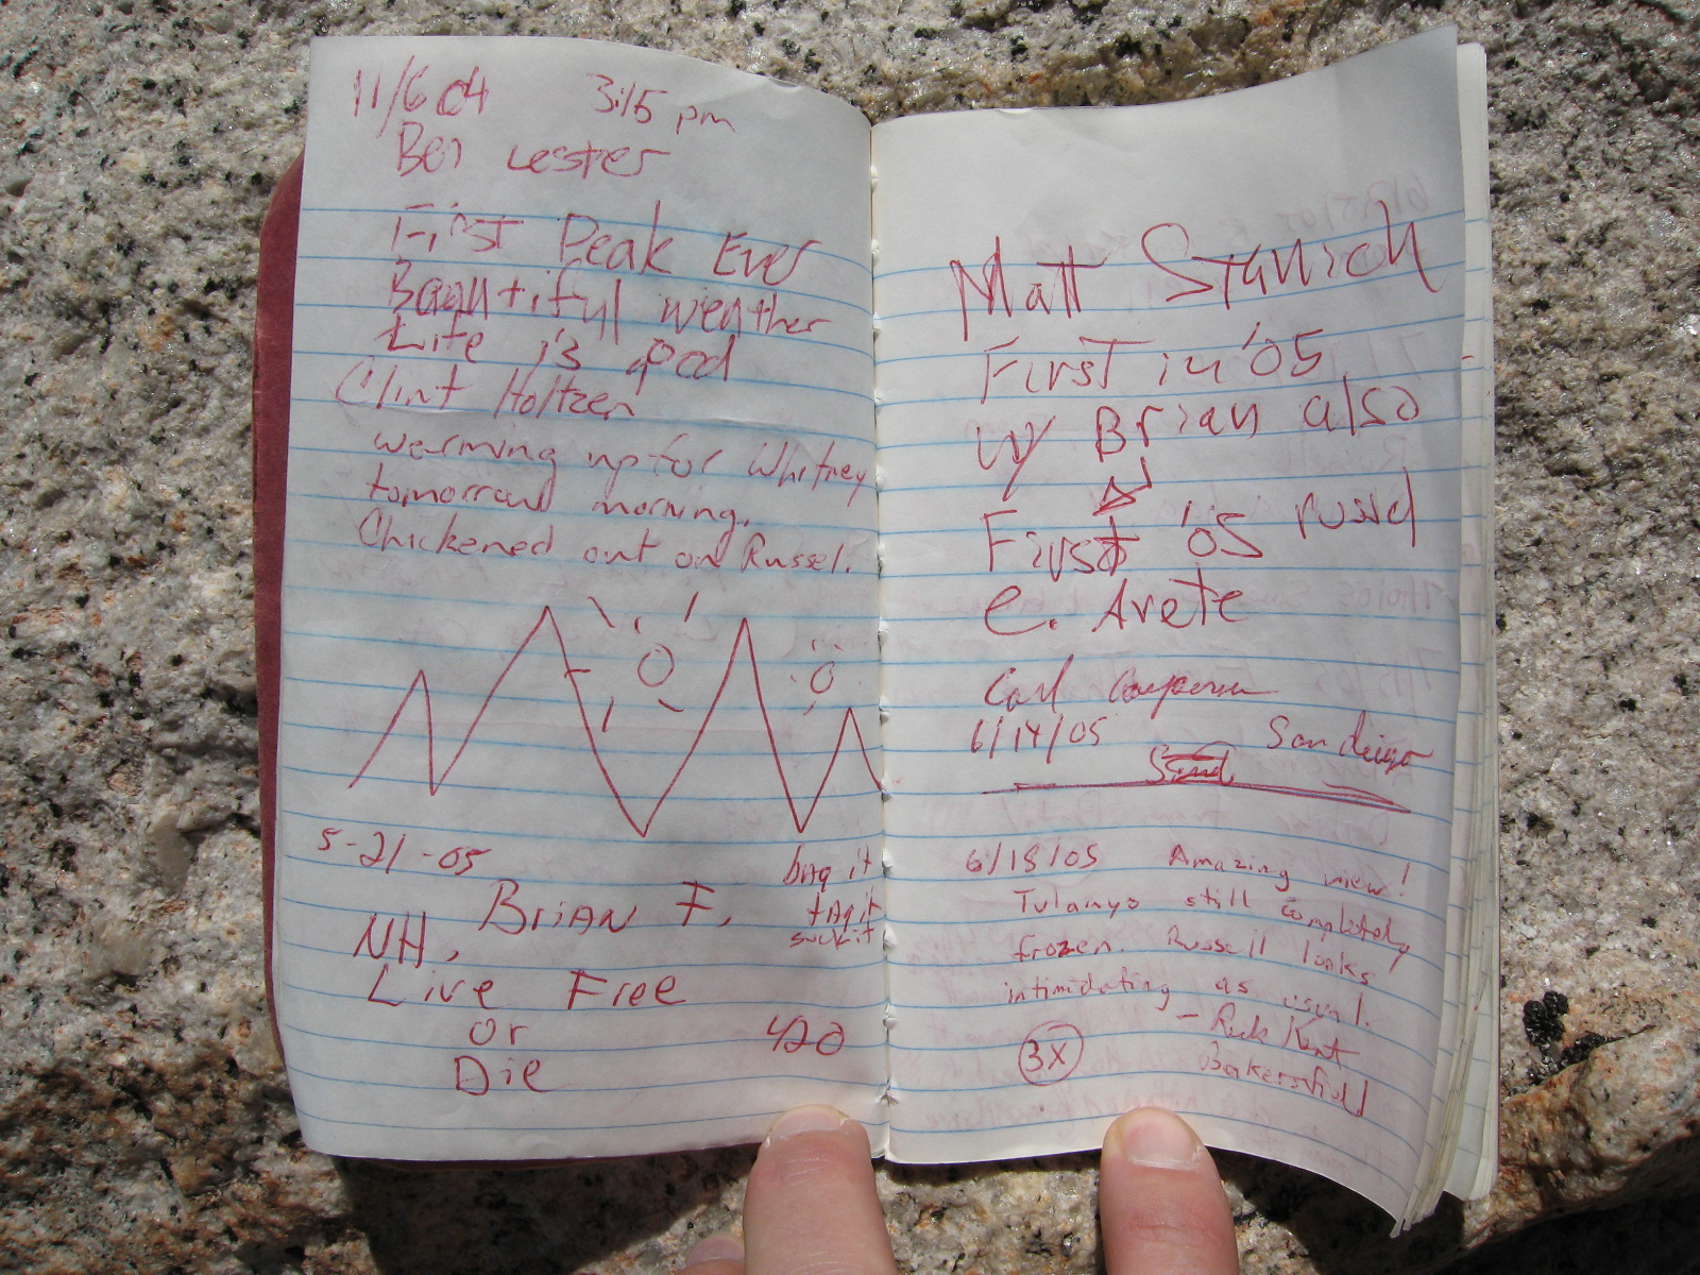 11/6 04 3:15 pm
Ben Lester
First Peak Ever
Beauutiful weather
Life is good
Clint Holtzen
warming up for Whitney
tomorrow morning.
Chickened out on Russel.
5-21-05
Brian F.
bag it
tag it
suck it
NH,
Live Free
or
Die
420
Matt Stanich
First in '05
w/ Brian also
First '05 russel
e. Arete
Carl
6/14/05 San diego
6/18/05 Amazing view!
Tulanyo still completely
frozen. Russell looks
intimidating as usual.
- Rick Kent
Bakersfield
3X